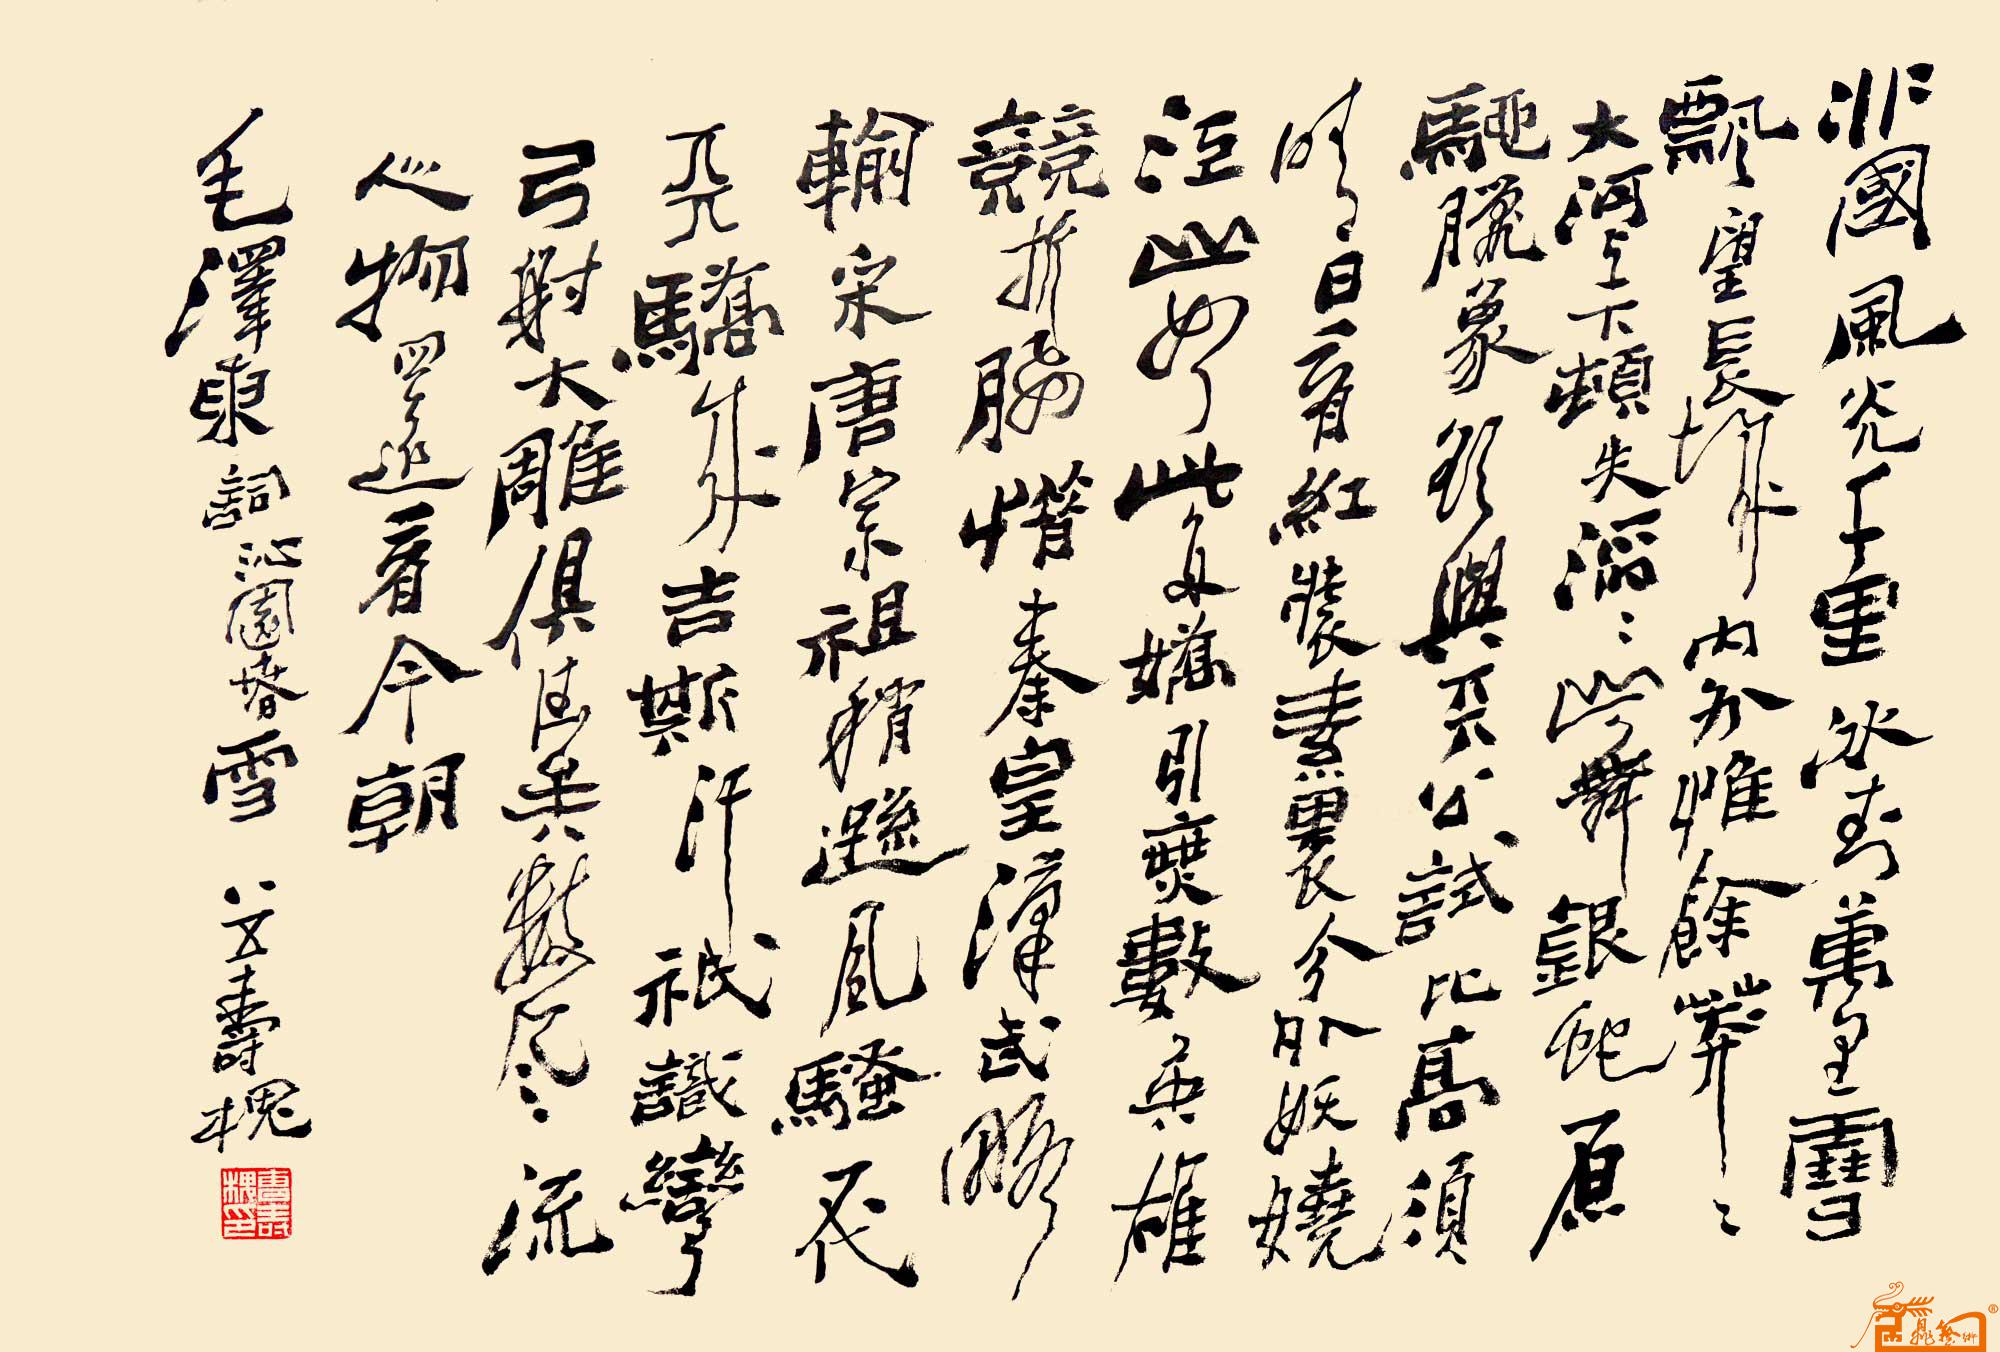 北國風光千里冰封萬里雪
飄望長城內外惟餘莽〻
大河上下頓失滔〻山舞銀蛇原
馳臘象欲與天公試比高須
晴日看紅裝素裹分外妖嬈
江山如此多嬌引無數英雄
競折腰惜秦皇漢武略
輸采唐宗祖稍遜風騷一代
天驕成吉斯汗祇識彎
弓射大雕俱往矣數風流
人物還看今朝
毛澤東詞沁園春雪 八五壽槐